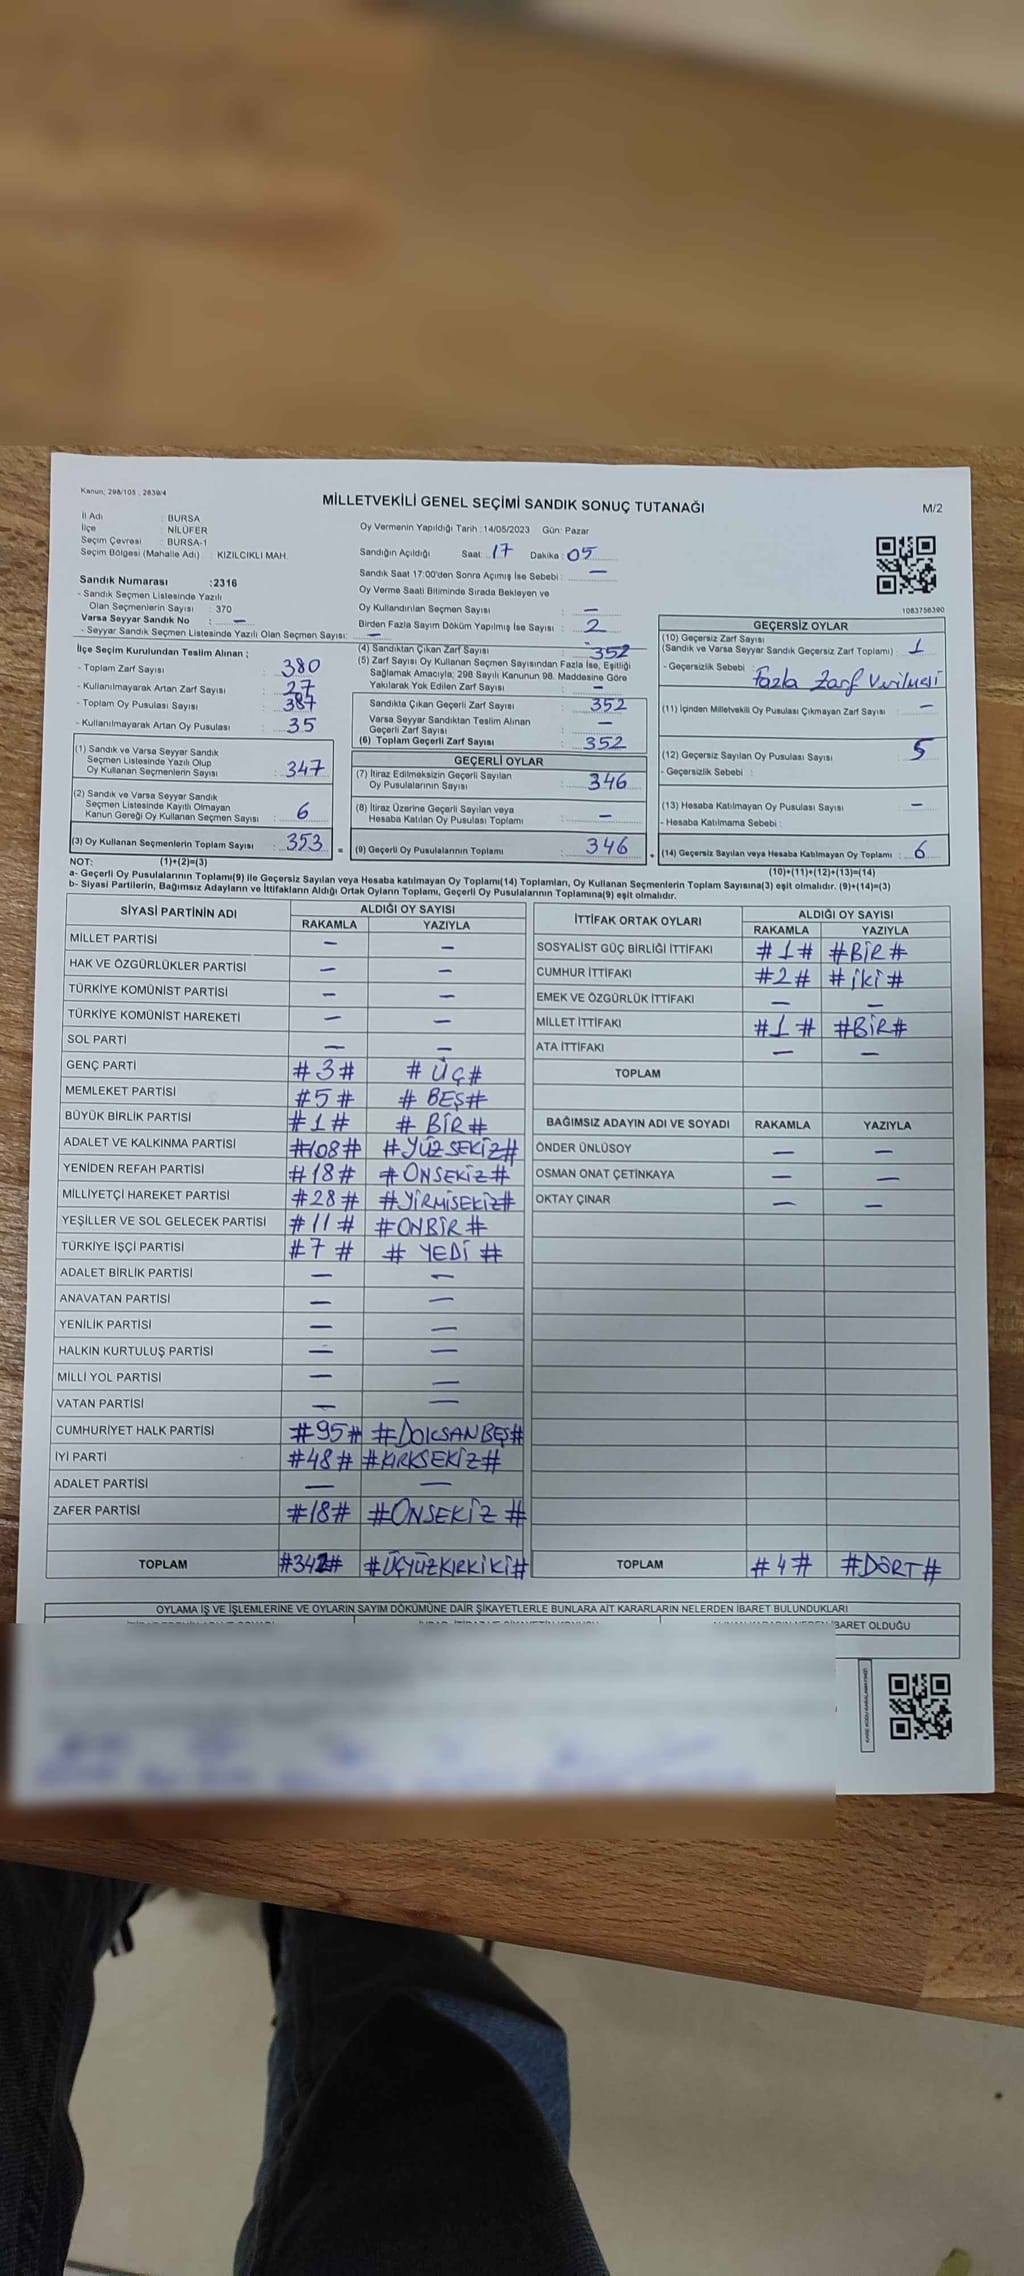 Kanun; 298/105 , 2839/4
MİLLETVEKİLİ GENEL SEÇİMİ SANDIK SONUÇ TUTANAĞI
M/2
İl Adı : BURSA
İlçe : NİLÜFER
Seçim Çevresi : BURSA-1
Seçim Bölgesi (Mahalle Adı) : KIZILCIKLI MAH.
Oy Vermenin Yapıldığı Tarih :14/05/2023 Gün: Pazar
Sandığın Açıldığı Saat: 17 Dakika : 05
Sandık Saat 17:00'den Sonra Açımış İse Sebebi : —
Oy Verme Saati Bitiminde Sırada Bekleyen ve
Oy Kullandırılan Seçmen Sayısı : —
Birden Fazla Sayım Döküm Yapılmış İse Sayısı : 2
Sandık Numarası :2316
- Sandık Seçmen Listesinde Yazılı
Olan Seçmenlerin Sayısı : 370
Varsa Seyyar Sandık No : —
- Seyyar Sandık Seçmen Listesinde Yazılı Olan Seçmen Sayısı: —
1083756390
İlçe Seçim Kurulundan Teslim Alınan ;
- Toplam Zarf Sayısı : 380
- Kullanılmayarak Artan Zarf Sayısı : 27
- Toplam Oy Pusulası Sayısı : 387
- Kullanılmayarak Artan Oy Pusulası : 35
(1) Sandık ve Varsa Seyyar Sandık
Seçmen Listesinde Yazılı Olup
Oy Kullanan Seçmenlerin Sayısı : 347
(2) Sandık ve Varsa Seyyar Sandık
Seçmen Listesinde Kayıtlı Olmayan
Kanun Gereği Oy Kullanan Seçmen Sayısı : 6
(3) Oy Kullanan Seçmenlerin Toplam Sayısı : 353 =
(4) Sandıktan Çıkan Zarf Sayısı : 352
(5) Zarf Sayısı Oy Kullanan Seçmen Sayısından Fazla İse, Eşitliği
Sağlamak Amacıyla; 298 Sayılı Kanunun 98. Maddesine Göre
Yakılarak Yok Edilen Zarf Sayısı : —
Sandıkta Çıkan Geçerli Zarf Sayısı : 352
Varsa Seyyar Sandıktan Teslim Alınan
Geçerli Zarf Sayısı : —
(6) Toplam Geçerli Zarf Sayısı : 352
GEÇERLİ OYLAR
(7) İtiraz Edilmeksizin Geçerli Sayılan
Oy Pusulalarının Sayısı : 346
(8) İtiraz Üzerine Geçerli Sayılan veya
Hesaba Katılan Oy Pusulası Toplamı : —
(9) Geçerli Oy Pusulalarının Toplamı : 346 +
GEÇERSİZ OYLAR
(10) Geçersiz Zarf Sayısı
(Sandık ve Varsa Seyyar Sandık Geçersiz Zarf Toplamı) : 1
- Geçersizlik Sebebi : Fazla Zarf Verilmesi
(11) İçinden Milletvekili Oy Pusulası Çıkmayan Zarf Sayısı : —
(12) Geçersiz Sayılan Oy Pusulası Sayısı : 5
- Geçersizlik Sebebi :
(13) Hesaba Katılmayan Oy Pusulası Sayısı : —
- Hesaba Katılmama Sebebi :
(14) Geçersiz Sayılan veya Hesaba Katılmayan Oy Toplamı : 6
NOT: (1)+(2)=(3)
(10)+(11)+(12)+(13)=(14)
a- Geçerli Oy Pusulalarının Toplamı(9) ile Geçersiz Sayılan veya Hesaba katılmayan Oy Toplamı(14) Toplamları, Oy Kullanan Seçmenlerin Toplam Sayısına(3) eşit olmalıdır. (9)+(14)=(3)
b- Siyasi Partilerin, Bağımsız Adayların ve İttifakların Aldığı Ortak Oyların Toplamı, Geçerli Oy Pusulalarının Toplamına(9) eşit olmalıdır.
SİYASİ PARTİNİN ADI ALDIĞI OY SAYISI
RAKAMLA YAZIYLA
MİLLET PARTİSİ — —
HAK VE ÖZGÜRLÜKLER PARTİSİ — —
TÜRKİYE KOMÜNİST PARTİSİ — —
TÜRKİYE KOMÜNİST HAREKETİ — —
SOL PARTİ — —
GENÇ PARTİ #3# #ÜÇ#
MEMLEKET PARTİSİ #5# #BEŞ#
BÜYÜK BİRLİK PARTİSİ #1# #BİR#
ADALET VE KALKINMA PARTİSİ #108# #YÜZSEKİZ#
YENİDEN REFAH PARTİSİ #18# #ONSEKİZ#
MİLLİYETÇİ HAREKET PARTİSİ #28# #YİRMİSEKİZ#
YEŞİLLER VE SOL GELECEK PARTİSİ #11# #ONBİR#
TÜRKİYE İŞÇİ PARTİSİ #7# #YEDİ#
ADALET BİRLİK PARTİSİ — —
ANAVATAN PARTİSİ — —
YENİLİK PARTİSİ — —
HALKIN KURTULUŞ PARTİSİ — —
MİLLİ YOL PARTİSİ — —
VATAN PARTİSİ — —
CUMHURİYET HALK PARTİSİ #95# #DOKSANBEŞ#
İYİ PARTİ #48# #KIRKSEKİZ#
ADALET PARTİSİ — —
ZAFER PARTİSİ #18# #ONSEKİZ#
TOPLAM #342# #ÜÇYÜZKIRKİKİ#
İTTİFAK ORTAK OYLARI ALDIĞI OY SAYISI
RAKAMLA YAZIYLA
SOSYALİST GÜÇ BİRLİĞİ İTTİFAKI #1# #BİR#
CUMHUR İTTİFAKI #2# #İKİ#
EMEK VE ÖZGÜRLÜK İTTİFAKI — —
MİLLET İTTİFAKI #1# #BİR#
ATA İTTİFAKI — —
TOPLAM
BAĞIMSIZ ADAYIN ADI VE SOYADI RAKAMLA YAZIYLA
ÖNDER ÜNLÜSOY — —
OSMAN ONAT ÇETİNKAYA — —
OKTAY ÇINAR — —
TOPLAM #4# #DÖRT#
OYLAMA İŞ VE İŞLEMLERİNE VE OYLARIN SAYIM DÖKÜMÜNE DAİR ŞİKAYETLERLE BUNLARA AİT KARARLARIN NELERDEN İBARET BULUNDUKLARI
İBARET OLDUĞU